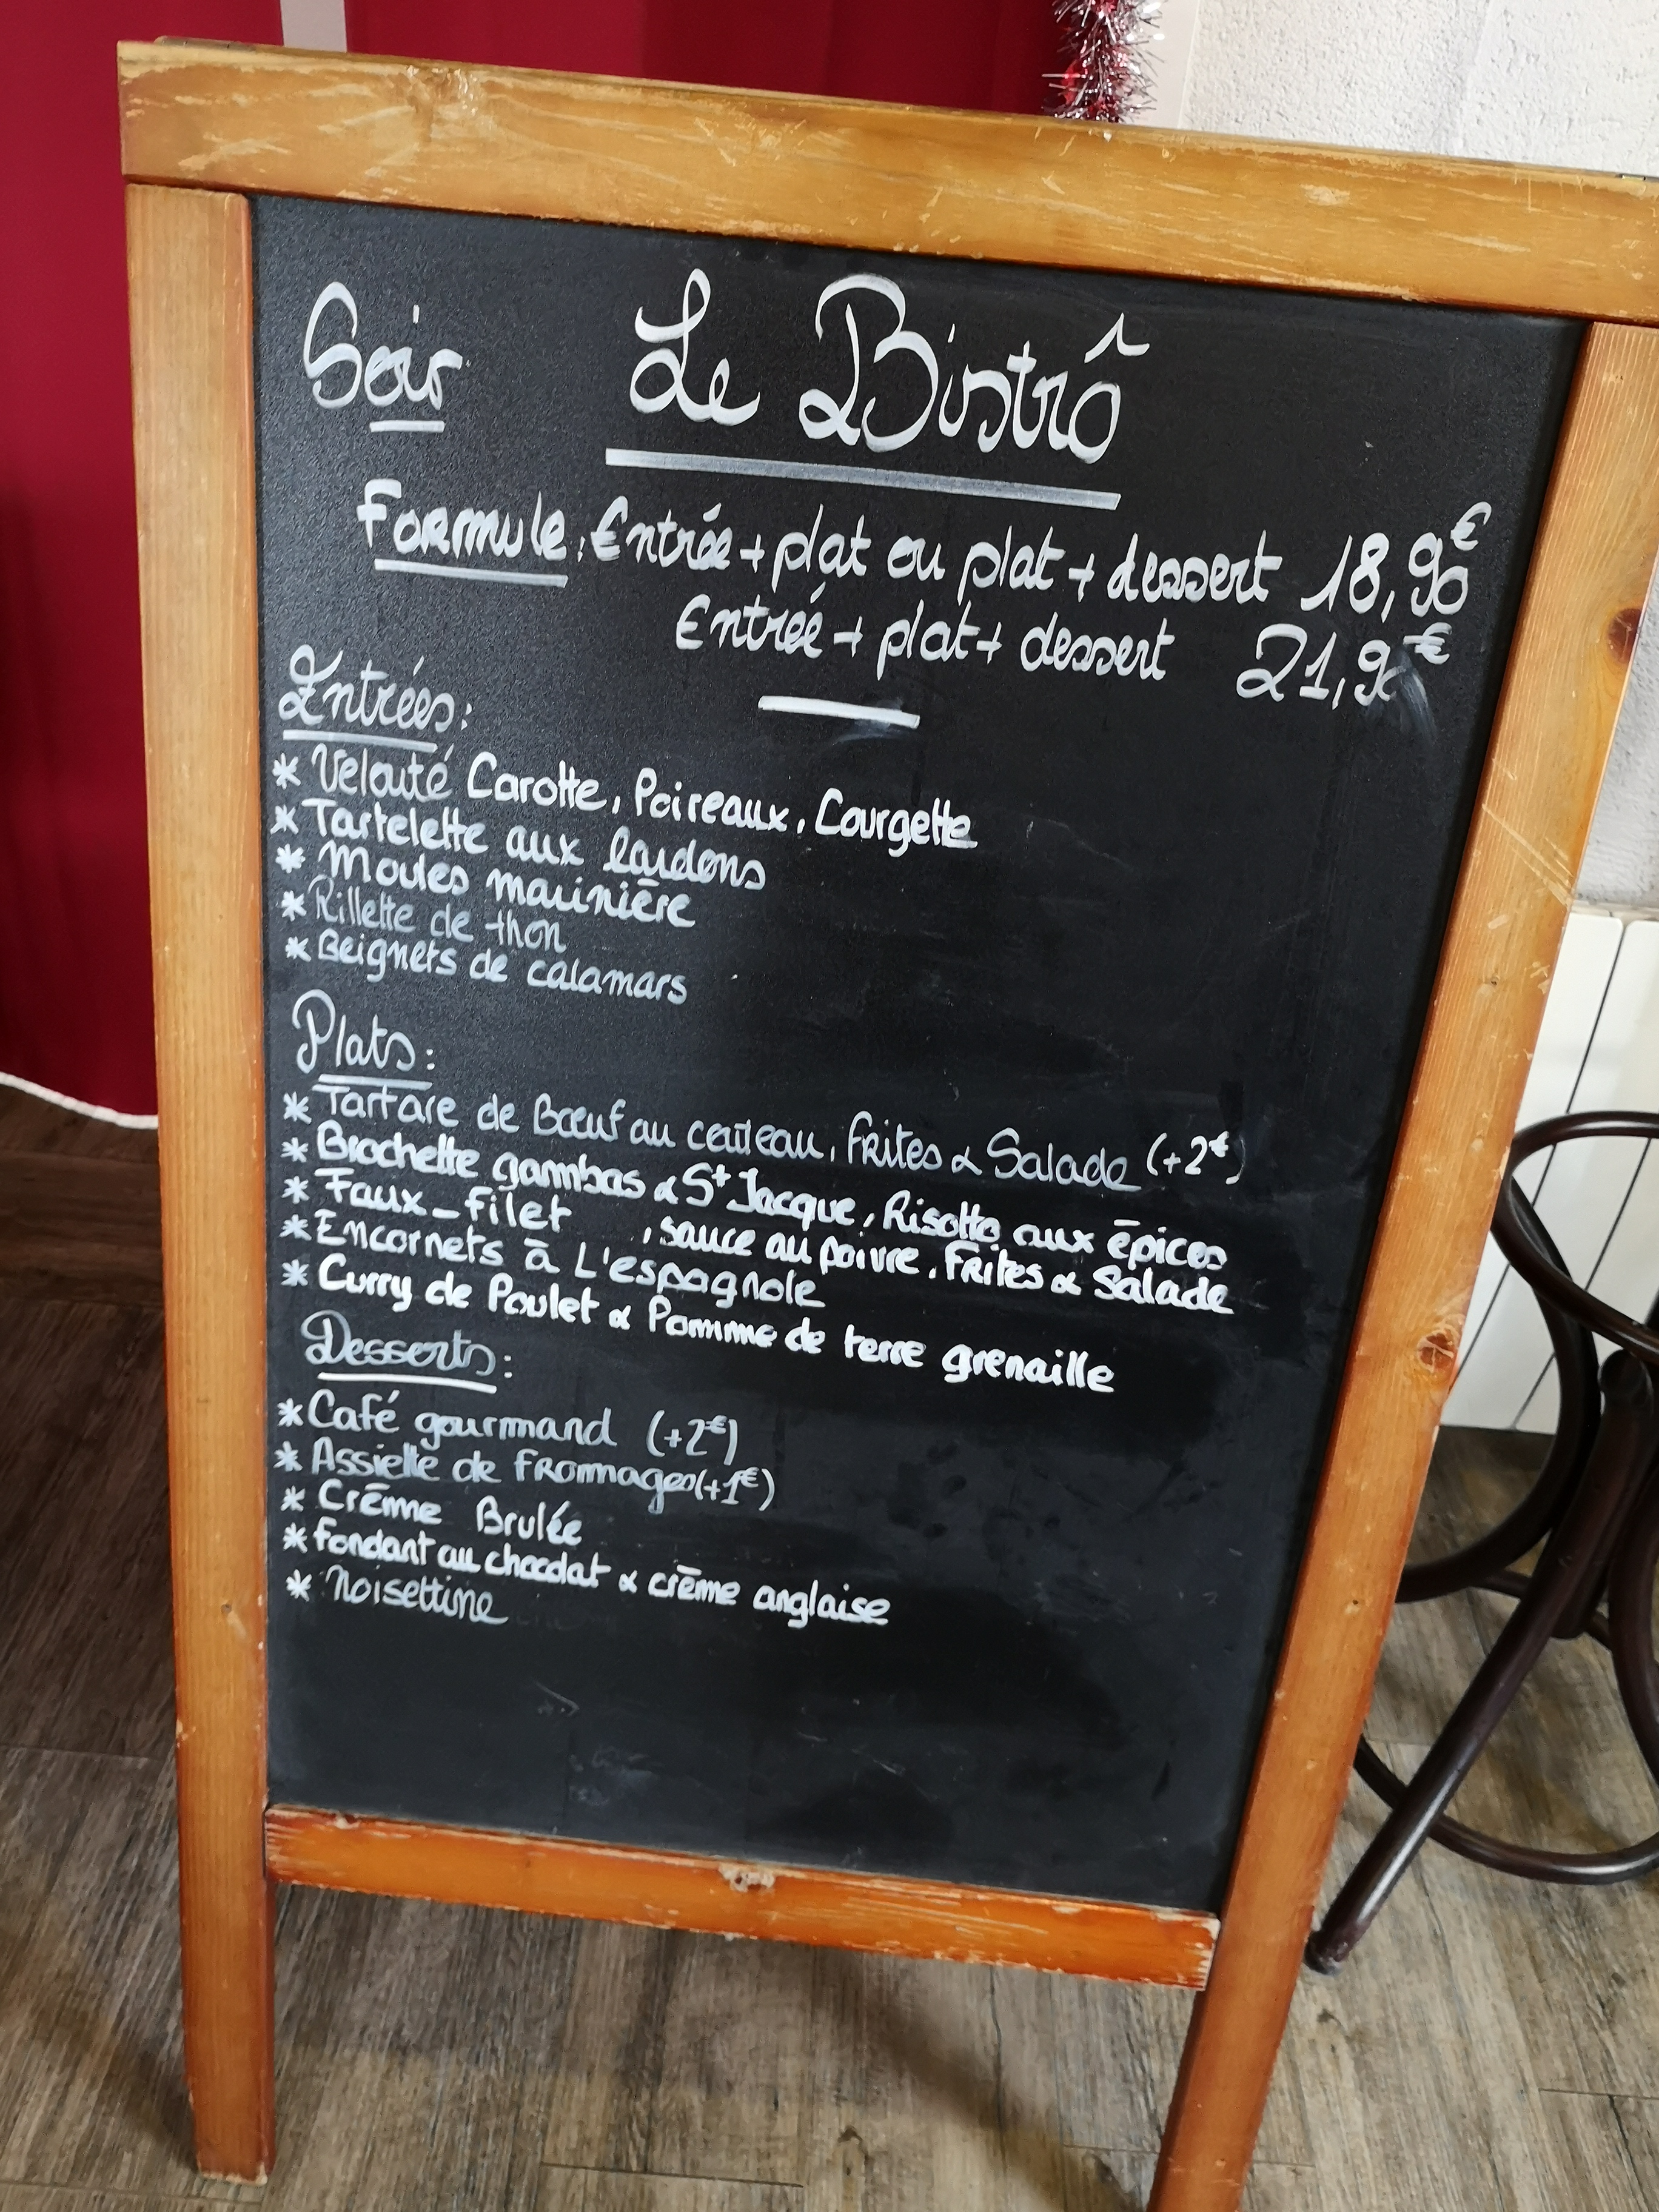 Soir Le Bistrô
Formule: Entrée + plat ou plat + dessert 18,90€
Entrée + plat + dessert 21,90€
Entrées:
* Velouté Carotte, Poireaux, Courgette
* Tartelette aux lardons
* Moules marinière
* Rillette de thon
* Beignets de calamars
Plats:
* Tartare de Bœuf au couteau, frites & Salade (+2€)
* Brochette gambas & St Jacque, Risotto aux épices
* Faux-filet , sauce au poivre, Frites & Salade
* Encornets à L'espagnole
* Curry de Poulet & Pomme de terre grenaille
Desserts:
* Café gourmand (+2€)
* Assiette de fromages (+1€)
* Crème Brulée
* fondant au chocolat & crème anglaise
* Noisettine